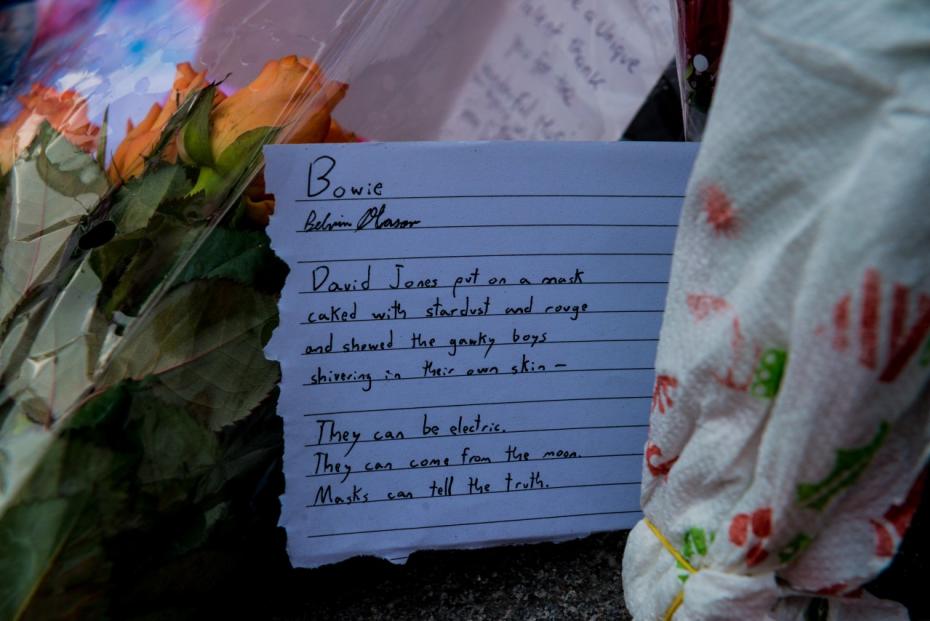 a Unique
Bowie
David Jones put on a mask
caked with stardust and rouge
and showed the gawky boys
shivering in their own skin —
They can be electric.
They can come from the moon.
Masks can tell the truth.